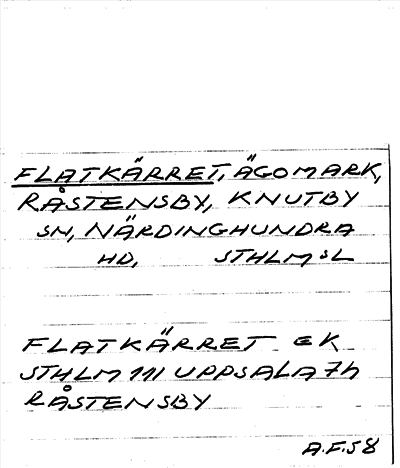 FLATKÄRRET, ÄGOMARK,
RÅSTENSBY, KNUTBY
SN, NÄRDINGHUNDRA
HD, STHLMSL
FLATKÄRRET EK
STHLM 111 UPPSALA 7h
RÅSTENSBY
A.F.58